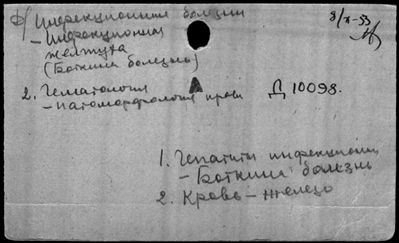 Инфекционные болезни
8/X-53
- Инфекционная
желтуха
(Боткина болезнь)
2. Гематология
- патоморфология крови
Д 10098.
1. Гепатиты инфекционн
- Боткина болезнь
2. Кровь - железо